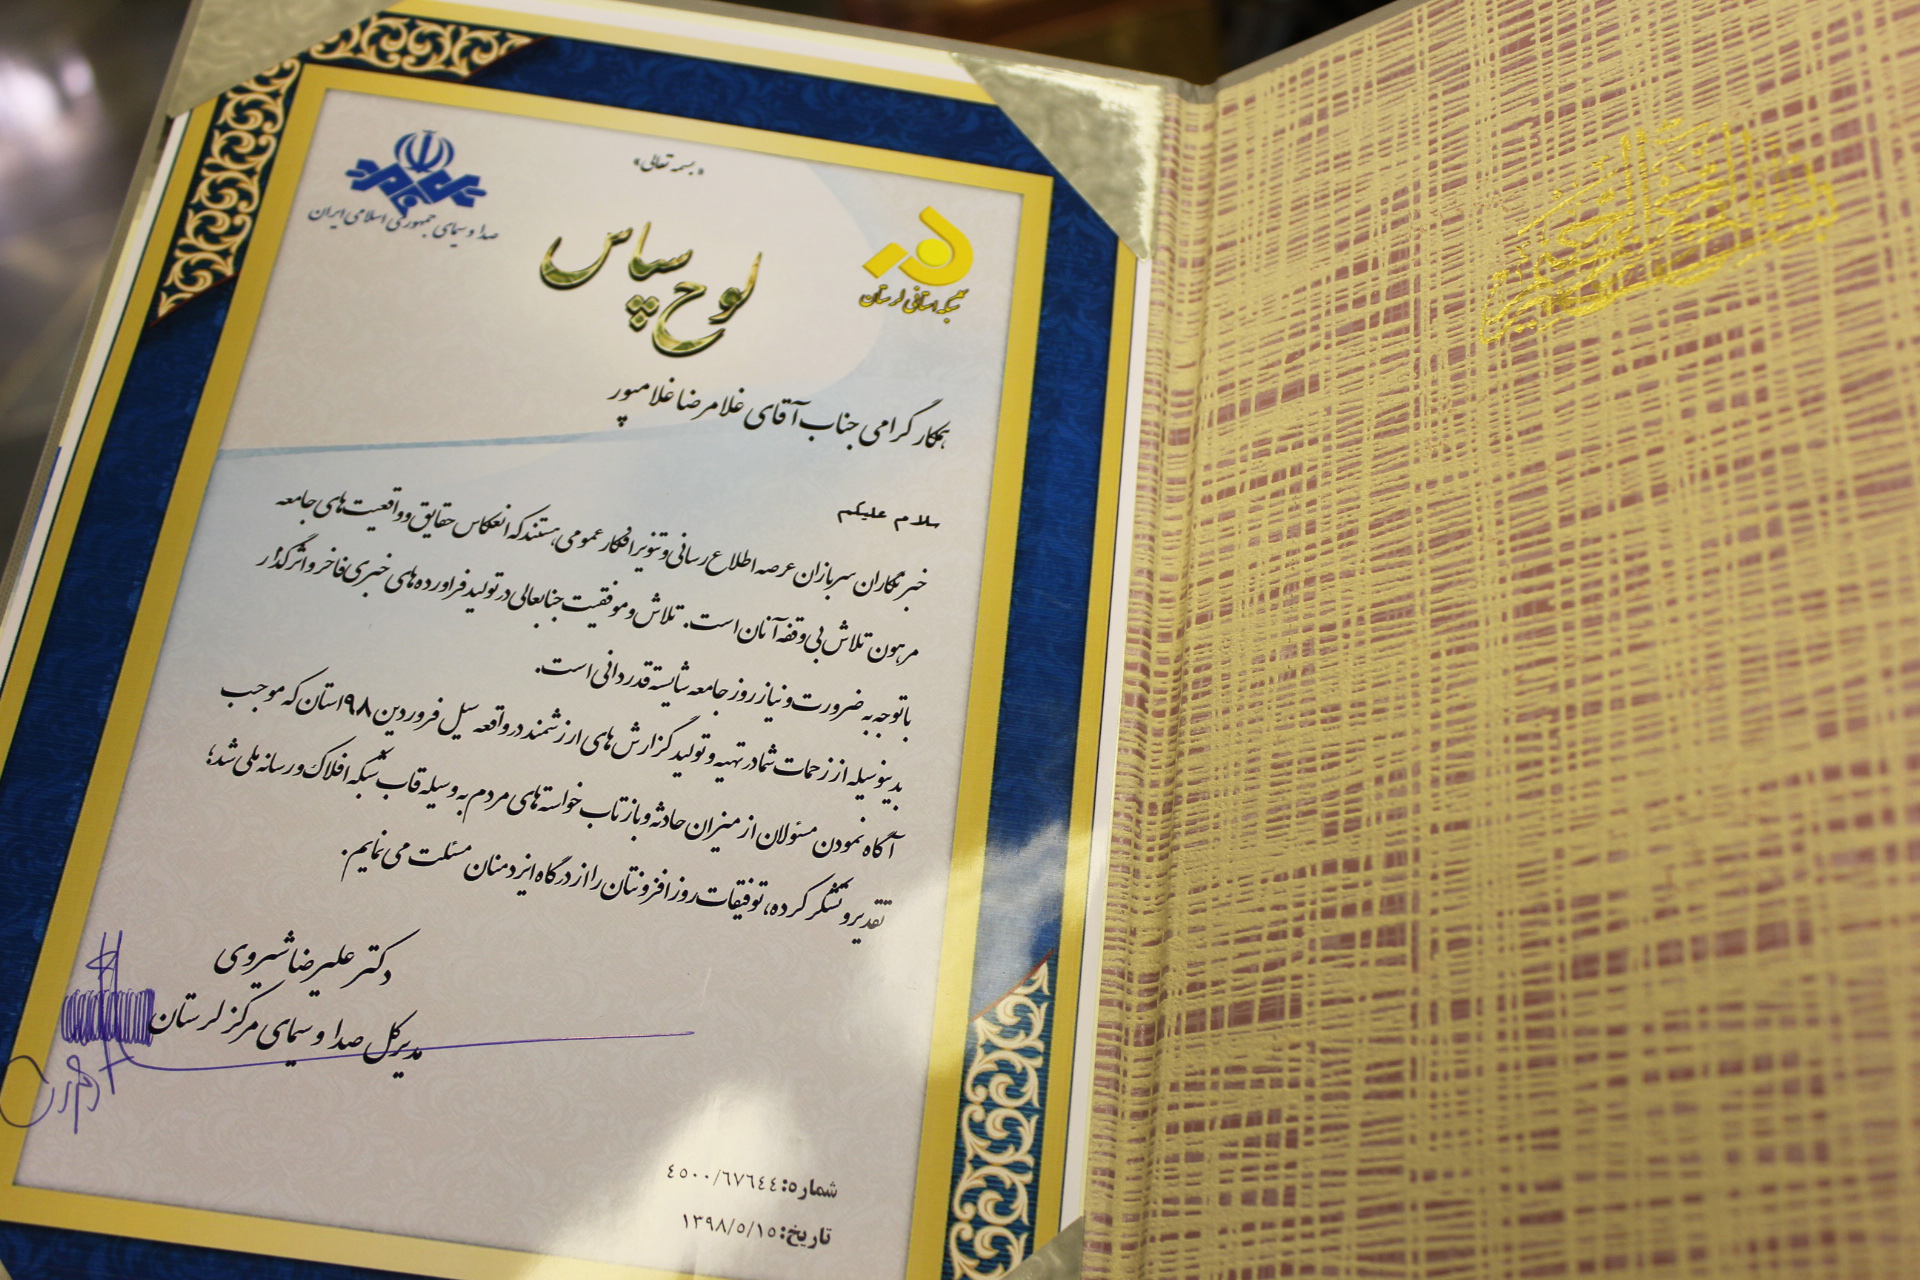 «بسمه تعالی»
صدا و سیمای جمهوری اسلامی ایران
شبکه استانی لرستان
لوح سپاس
همکار گرامی جناب آقای غلامرضا غلامپور
سلام علیکم
خبرنگاران سربازان عرصه اطلاع رسانی و تنویر افکار عمومی هستند که انعکاس حقایق و واقعیت‌های جامعه
مرهون تلاش بی وقفه آنان است. تلاش و موفقیت جنابعالی در تولید فراورده‌های خبری فاخر و اثرگذار
با توجه به ضرورت و نیاز روز جامعه شایسته قدردانی است.
بدینوسیله از زحمات شما در تهیه و تولید گزارش‌های ارزشمند در واقعه سیل فروردین ۹۸ استان که موجب
آگاه نمودن مسئولان از میزان حادثه و بازتاب خواسته‌های مردم به وسیله قاب شبکه افلاک و رسانه ملی شد؛
تقدیر و تشکر کرده، توفیقات روزافزونتان را از درگاه ایزد منان مسئلت می نمایم.
دکتر علیرضا شیروی
مدیرکل صدا و سیمای مرکز لرستان
شماره: ٤٥٠٠/٦٧٦٤٤
تاریخ: ١٣٩٨/٥/١٥